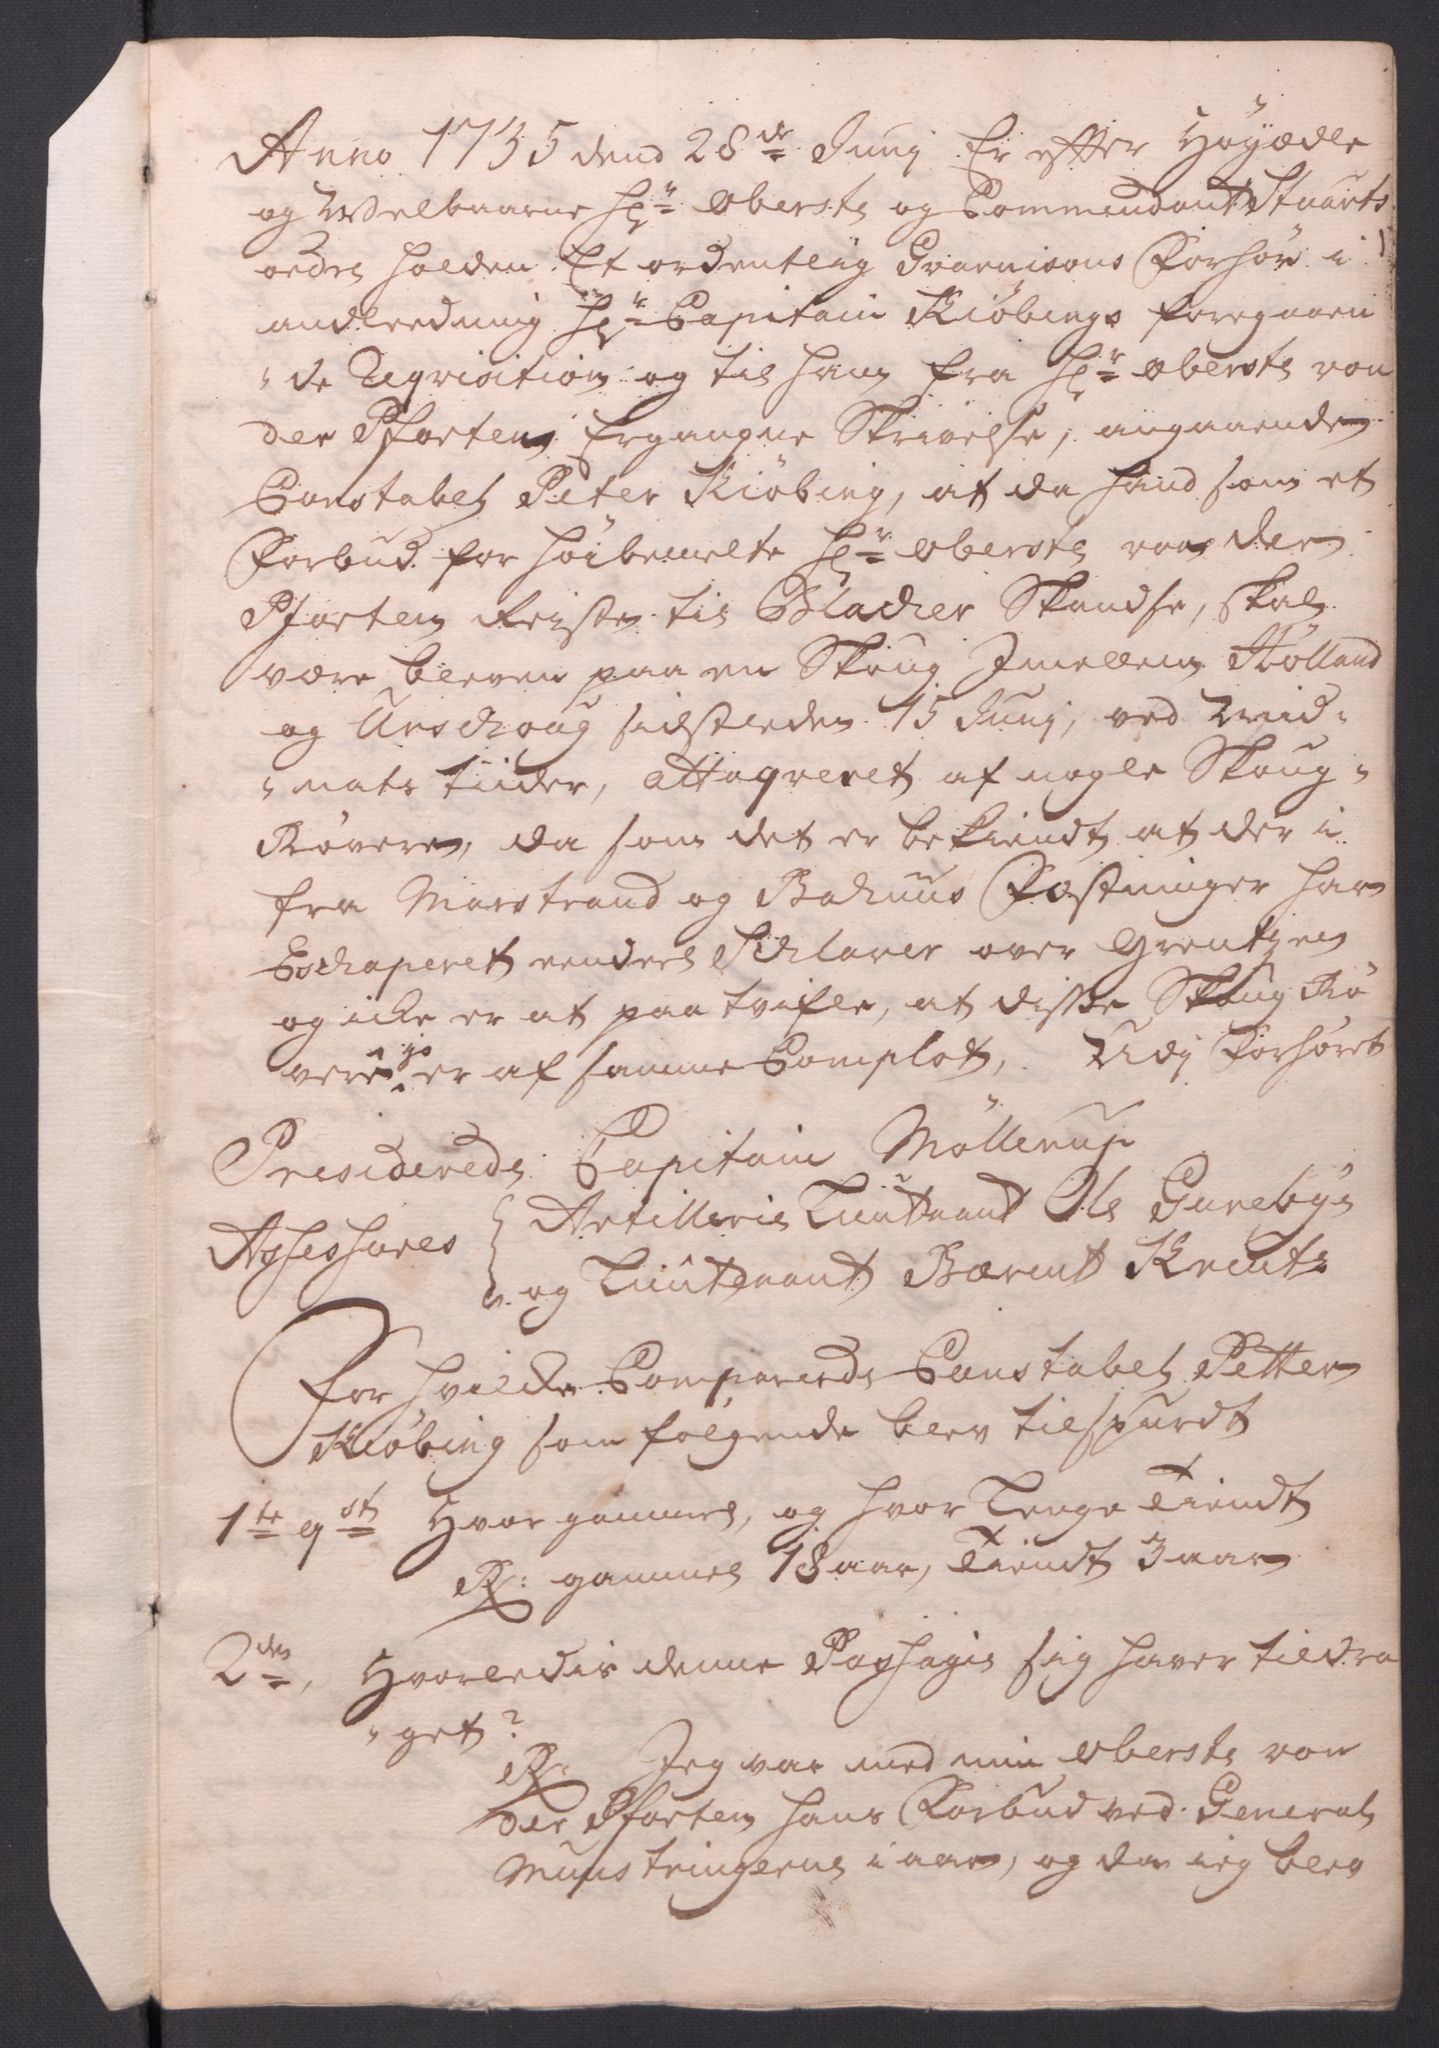 Anno 1735 dend 28de Junj Er effter Höyædle
og Welbaarne Hr Oberste og Commendant Stuarts
ordre holden Et ordentlig Gvarnisons Forhör i
andleedning Hr Capitain Kiöbings foregaaen
"de Reqvisition og til ham fra Hr Oberste von
der Pforten Ergangne Skrivelse, angaaende
Constabel Peter Kiöbing, at da hand som et
Forbud for höibemelte Hr Oberste von der
Pforten Reiste til Blacker Skandse, skal
være bleven paa en Skoug Jmellem Rölland
og Urschoug sidstleden 15 Junj, ved Mid=
"nats tiider, attaqveret af nogle Skoug=
Rövere, da som det er bekiendt at der i
fra Marstrand og Bahuus Fæstninger har
Eschaperet eendeel Schlaver over Grentzen
og icke er at paa tvifle, at disse Skoug Rö
vere jo er af samme Complot, Udj Forhöret
Presiderede Capitain Möllerup
Assessores Artillerie Lieutnant Ole Garebÿe
og Lieutenant Bærent Kreutz
For hvilcke Comparerede Constabel Petter
Kiöbing som fölgende blev tilspurdt
1te qst Hvor gammel, og hvor Lenge Tiendt
R: gammel 18 aar, Tiendt 3 aar
2den, Hvorledis denne Passagie sig haver tildra
"get?
R: Jeg var med min Oberste von
der Pforten hans Forbud ved General
Munstringerne i aar, og da ieg blev